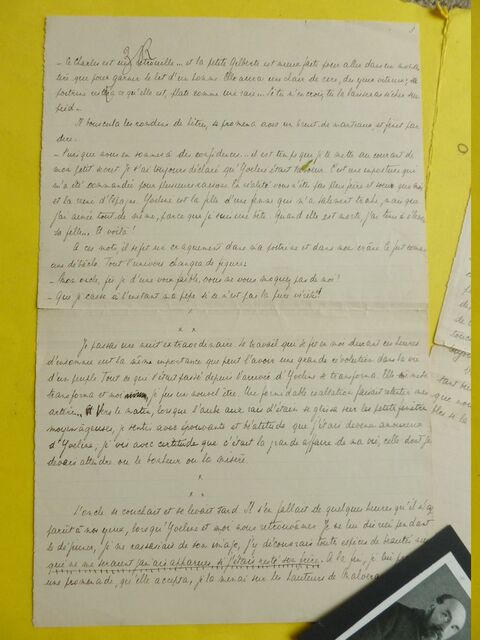 - Ce Charles est une citrouille... et la petite Gilberte est mieux faite pour aller dans un
que pour garnir le lit d'un homme. Elle aura une chair de cire, des yeux
poitrine est ce qu'elle est, plate comme une raie... Si tu m'en crois, tu la laisseras sécher sur
pied -
Il bouscula les rondins de l'âtre, se promena avec un bruit de et finit par
dire.
- Puisque nous en sommes à des confidences... il est temps que je te mette au courant de
mon petit secret. Je t'ai toujours déclaré qu'Yveline était ta sœur. C'est une imposture qui
m'a été commandée par plusieurs raisons. En réalité vous n'êtes pas plus frère et sœur que moi
et la reine d'Espagne. Yveline est la fille d'une femme qui m'a salement trahi, mais que
j'ai aimée tout de même, parce que je suis une bête. Quand elle est morte, j'ai tenu à élever
sa fille... Et voilà!
A ces mots, il se fit un craquement dans ma poitrine et dans mon crâne. Ce fut comme
une débâcle. Tout l'univers changea de figure.
- Mon oncle, fis-je d'une voix faible, vous ne vous moquez pas de moi?
- Que je casse à l'instant ma pipe si ce n'est pas la pure vérité!
* *
Je passai une nuit extraordinaire. Le travail qui se fit en moi durant ces heures
d'insomnie eut la même importance que peut l'avoir une grande révolution dans la vie
d'un peuple. Tout ce qui s'était passé depuis l'arrivée d'Yveline se transforma. Elle-même
transforma et moi je fus un nouvel être. Une formidable exaltation faisait retentir mes
artères. Vers le matin, lorsque l'aube aux rais d'étain se glissa sur les petites fenêtres
moyenâgeuses, je sentis avec épouvante et béatitude que j'étais devenu amoureux
d'Yveline, je vis avec certitude que c'était la grande affaire de ma vie, celle dont je
devais attendre ou le bonheur ou la misère.
*
* *
L'oncle se couchait et se levait tard. Il s'en fallait de quelques heures qu'il n'ap
parût à nos yeux, lorsqu'Yveline et moi nous retrouvâmes. Je ne lui dis rien pendant
le déjeuner, je me rassasiais de son image, j'y découvrais toutes espèces de beautés
que ne me seraient jamais apparues, si j'étais resté son frère. A la fin, je lui
une promenade, qu'elle accepta, je la menai sur les hauteurs de